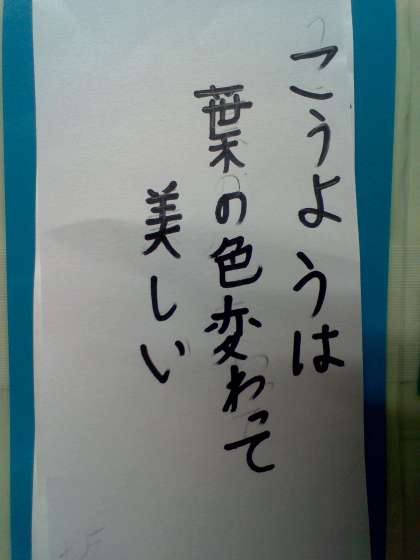 こうようは
葉の色変わって
美しい